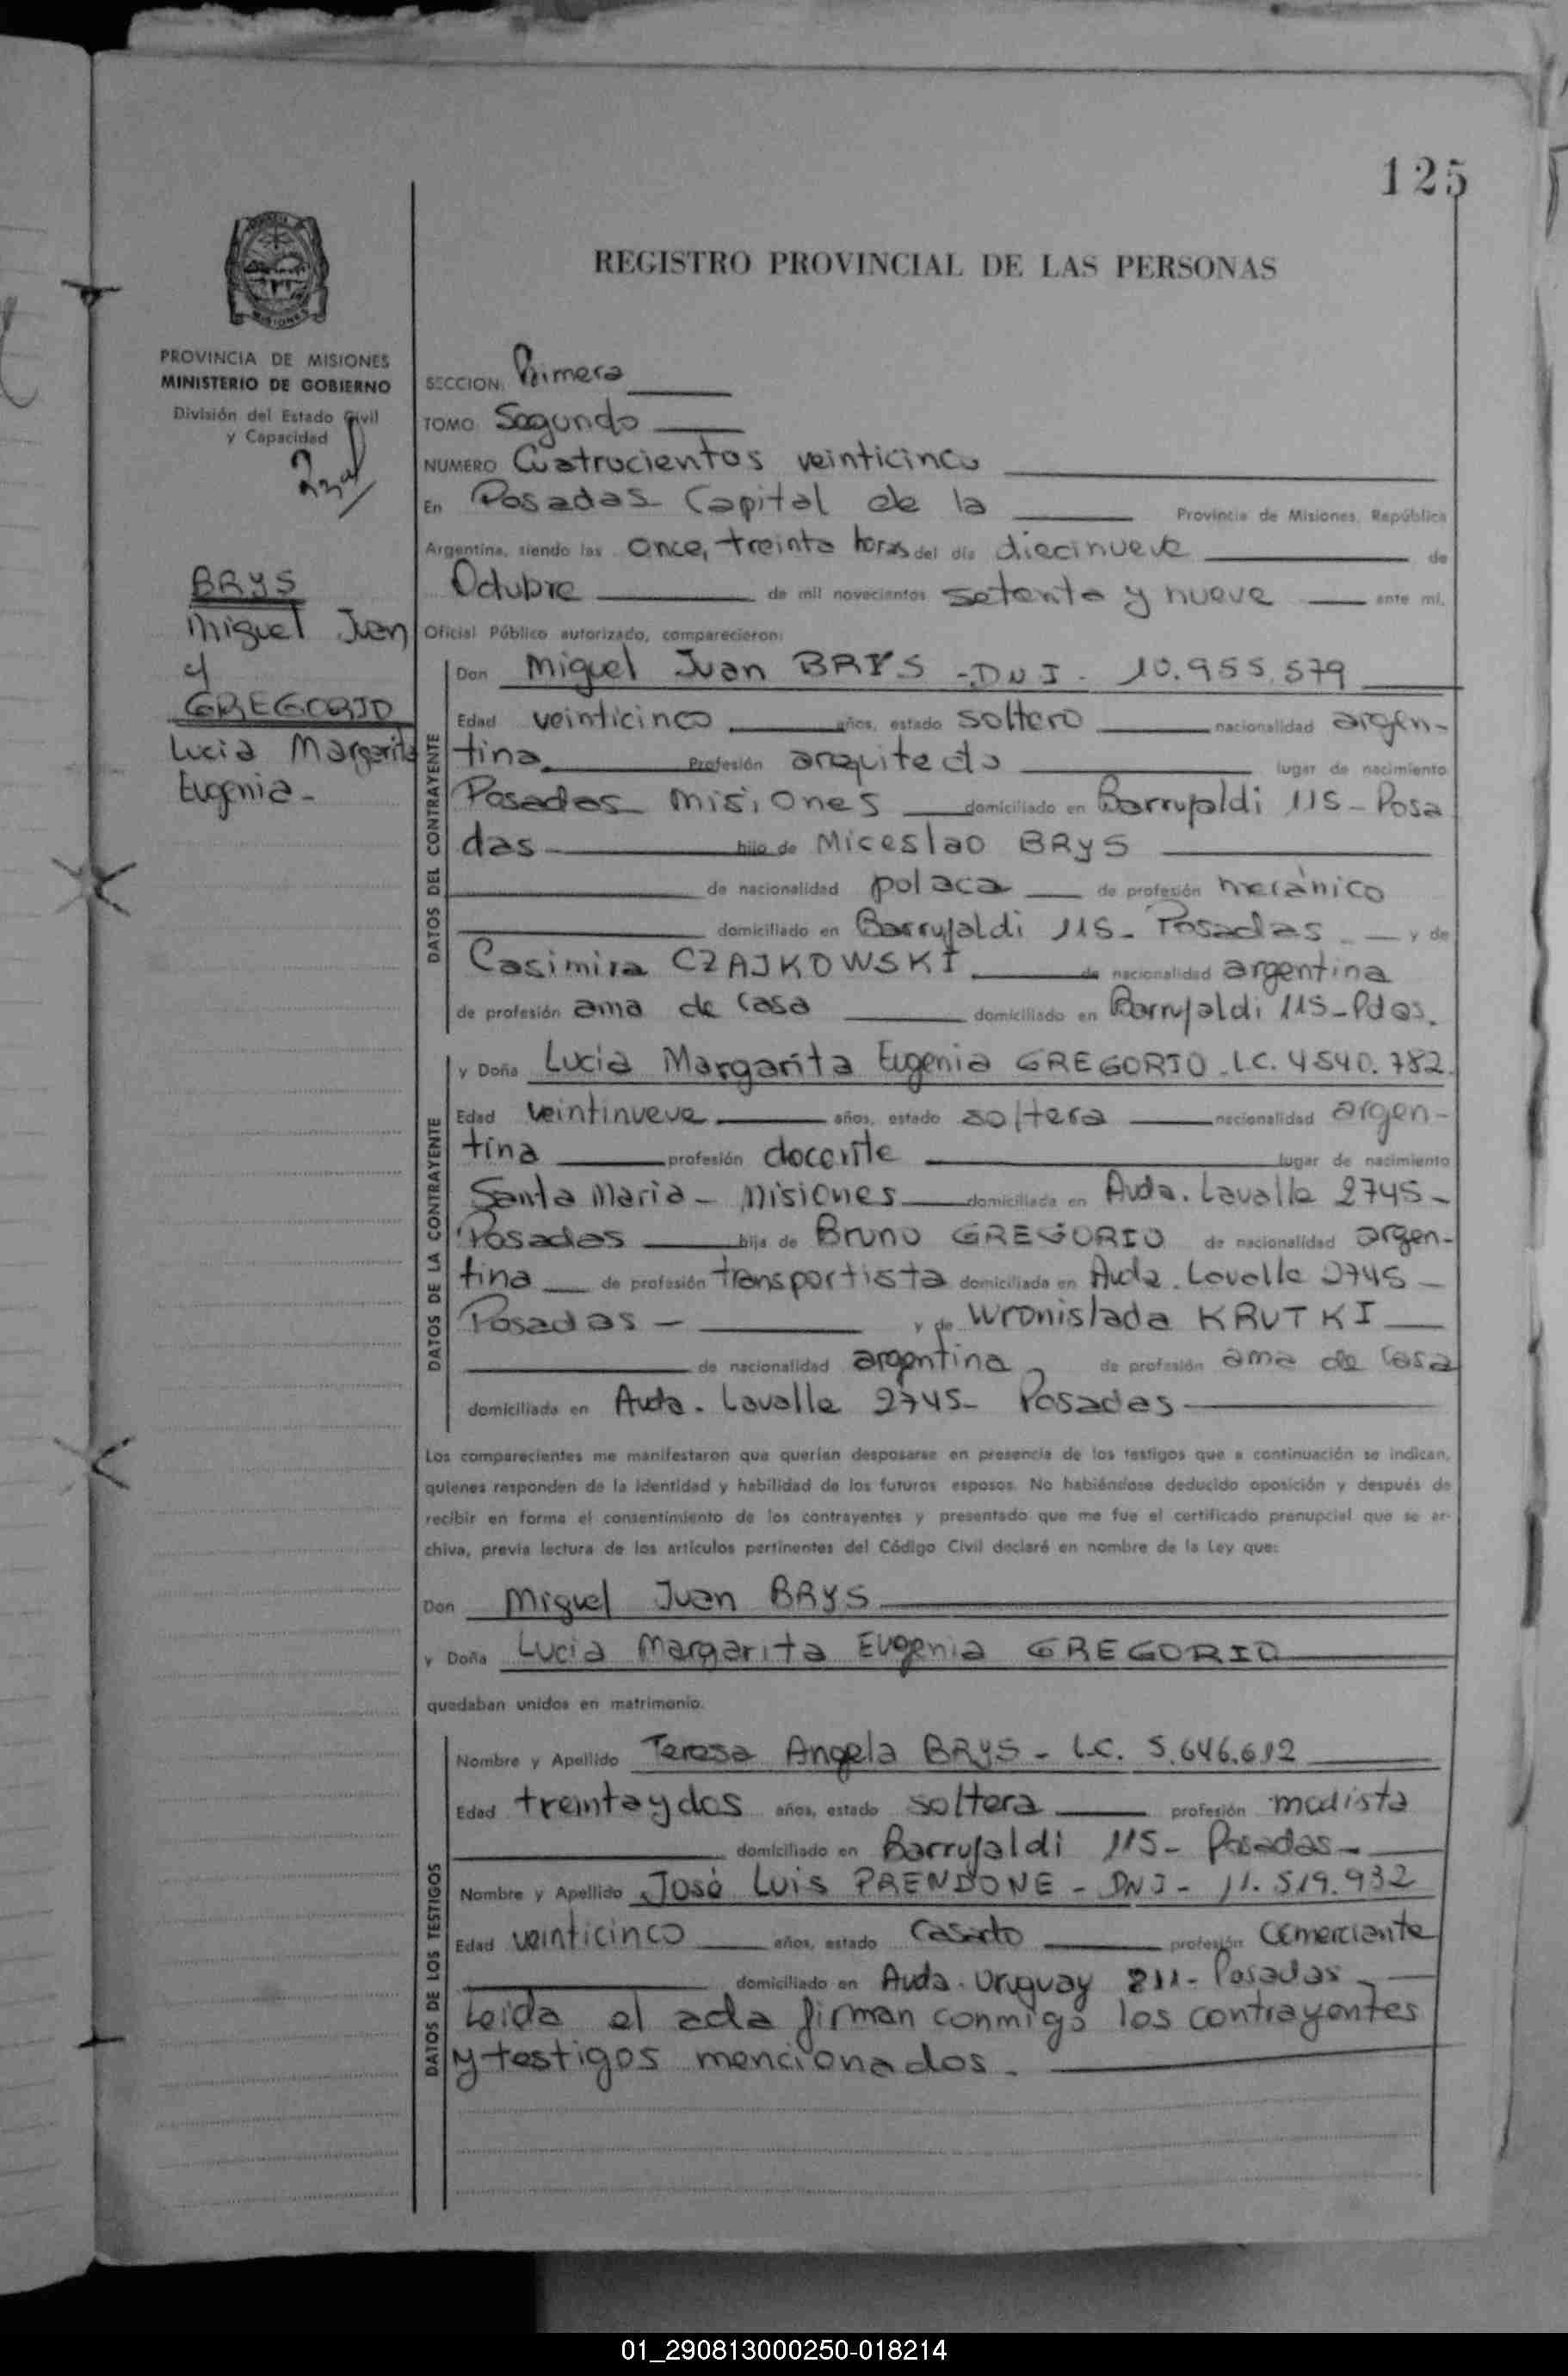 125
REGISTRO PROVINCIAL DE LAS PERSONAS
MISIONES
PROVINCIA DE MISIONES
MINISTERIO DE GOBIERNO
División del Estado Civil
y Capacidad
BRYS
Miguel Juan
y
GREGORIO
Lucia Margarita
Eugenia -
SECCION Primera
TOMO Segundo
NUMERO Cuatrocientos veinticinco
En Posadas Capital de la Provincia de Misiones, República
Argentina, siendo las once, treinta horas del día diecinueve de
Octubre de mil novecientos setenta y nueve ante mí,
Oficial Público autorizado, comparecieron:
DATOS DEL CONTRAYENTE
Don Miguel Juan BRYS - DNI - 10.955.579
Edad veinticinco años, estado soltero nacionalidad argen-
tina Profesión arquitecto lugar de nacimiento
Posadas Misiones domiciliado en Barrufaldi 115 - Posa
das hijo de Miceslao BRYS
de nacionalidad polaca de profesión mecánico
domiciliado en Barrufaldi 115 - Posadas - y de
Casimira CZAJKOWSKI de nacionalidad argentina
de profesión ama de casa domiciliado en Barrufaldi 115 - Pdas.
DATOS DE LA CONTRAYENTE
y Doña Lucia Margarita Eugenia GREGORIO - L.C. 4540.782
Edad veintinueve años, estado soltera nacionalidad argen-
tina profesión docente lugar de nacimiento
Santa Maria - Misiones domiciliada en Avda. Lavalle 2745 -
Posadas hija de Bruno GREGORIO de nacionalidad argen-
tina de profesión transportista domiciliado en Avda. Lavalle 2745 -
Posadas - y de Wronislada KRUTKI
de nacionalidad argentina de profesión ama de casa
domiciliada en Avda. Lavalle 2745 - Posadas
Los comparecientes me manifestaron que querían desposarse en presencia de los testigos que a continuación se indican,
quienes responden de la identidad y habilidad de los futuros esposos. No habiéndose deducido oposición y después de
recibir en forma el consentimiento de los contrayentes y presentado que me fue el certificado prenupcial que se ar-
chiva, previa lectura de los artículos pertinentes del Código Civil declaré en nombre de la Ley que:
Don Miguel Juan BRYS
y Doña Lucia Margarita Eugenia GREGORIO
quedaban unidos en matrimonio.
DATOS DE LOS TESTIGOS
Nombre y Apellido Teresa Angela BRYS - L.C. 5.646.612
Edad treinta y dos años, estado soltera profesión modista
domiciliado en Barrufaldi 115 - Posadas -
Nombre y Apellido José Luis PRENDONE - DNI - 11.519.932
Edad veinticinco años, estado Casado profesión Comerciante
domiciliado en Avda. Uruguay 811 - Posadas
Leida el acta firman conmigo los contrayentes
y testigos mencionados -
01_290813000250-018214